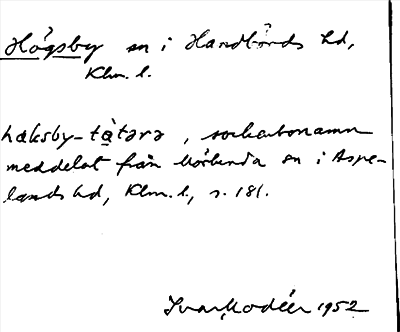 Högsby sn i Handbörds hd,
Klm. l.
høksby-tàtərə, sockenbonamn
meddelat från Mörlunda sn i Aspe-
lands hd, Klm. l., s. 181.
Ivar Modéer 1952